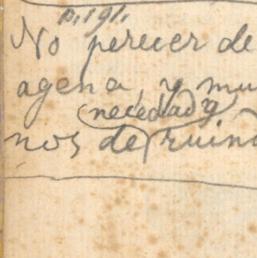 p. 191.
No perecer de
agena, y mu
necedad y
nos de ruin